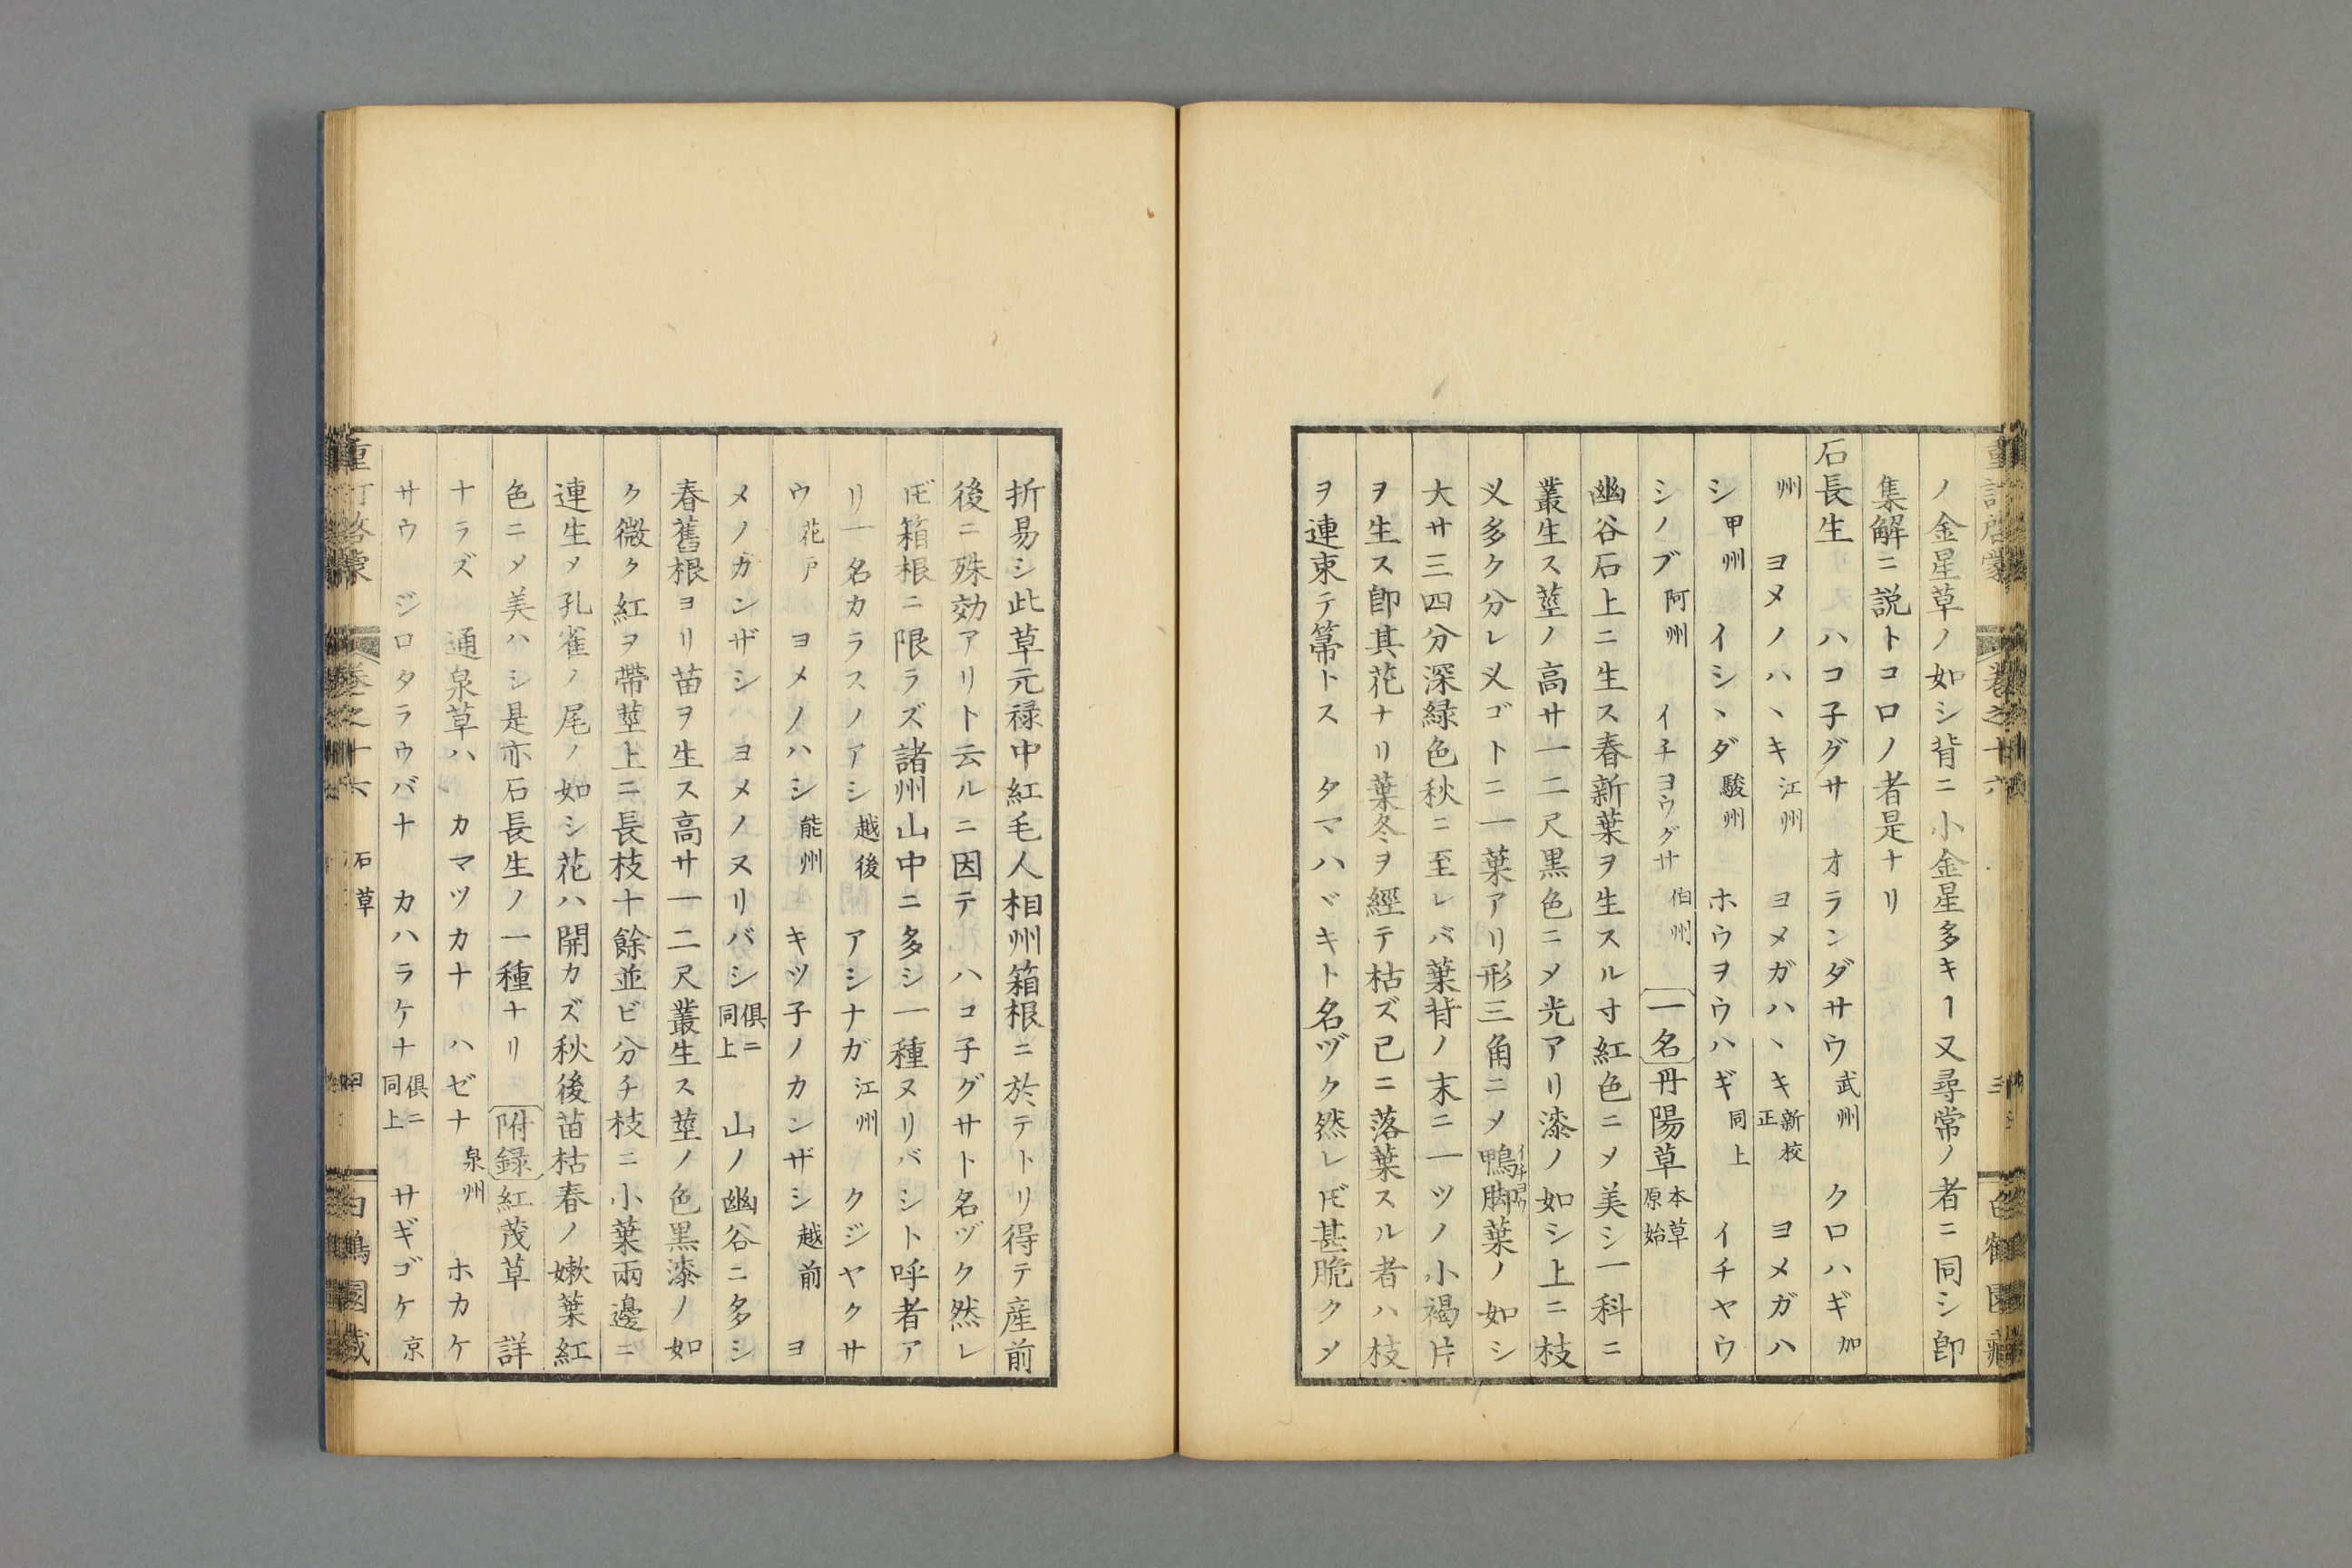 ノ金星草ノ如シ背ニ小金星多キヿ又尋常ノ者ニ同シ卽
集解ニ説トコロノ者是ナリ
石長生　ハコ子グサ　オランダサウ武州　クロハギ加
州　ヨメノハヽキ江州　ヨメガハヽキ新校正　ヨメガハ
シ甲州　イシヽダ駿州　ホウヲウハギ同上　イチヤウ
シノブ阿州　イチヨウグサ伯州　一名丹陽草本草原始
幽谷石上ニ生ス春新葉ヲ生スル寸紅色ニメ美シ一科ニ
叢生ス莖ノ高サ一二尺黒色ニメ光アリ漆ノ如シ上ニ枝
乂多ク分レ乂ゴトニ一葉アリ形三角ニメ鴨脚イチヨウ葉ノ如シ
大サ三四分深緑色秋ニ至レバ葉背ノ末ニ一ツノ小褐片
ヲ生ス卽其花ナリ葉冬ヲ經テ枯ズ已ニ落葉スル者ハ枝
ヲ連束テ箒トス　タマハヾキト名ヅク然レ𪜈甚脆クメ
折易シ此草元禄中紅毛人相州箱根ニ於テトリ得テ産前
後ニ殊効アリト云ルニ因テ　ハコ子グサト名ヅク然レ
𪜈箱根ニ限ラズ諸州山中ニ多シ一種ヌリバシト呼者ア
リ一名カラスノアシ越後　アシナガ江州　クジヤクサ
ウ花戸　ヨメノハシ能州　キツ子ノカンザシ越前　ヨ
メノガンザシ　ヨメノヌリバシ倶ニ同上　山ノ幽谷ニ多シ
春舊根ヨリ苗ヲ生ス高サ一二尺叢生ス莖ノ色黒漆ノ如
ク微ク紅ヲ帶莖上ニ長枝十餘並ビ分チ枝ニ小葉兩邊ニ
連生メ孔雀ノ尾ノ如シ花ハ開カズ秋後苗枯春ノ嫰葉紅
色ニメ美ハシ是亦石長生ノ一種ナリ　附録紅茂草　詳
ナラズ　通泉草ハ　カマツカナ　ハゼナ泉州　ホカケ
サウ　ジロタラウバナ　カハラケナ倶ニ同上　サギゴケ京